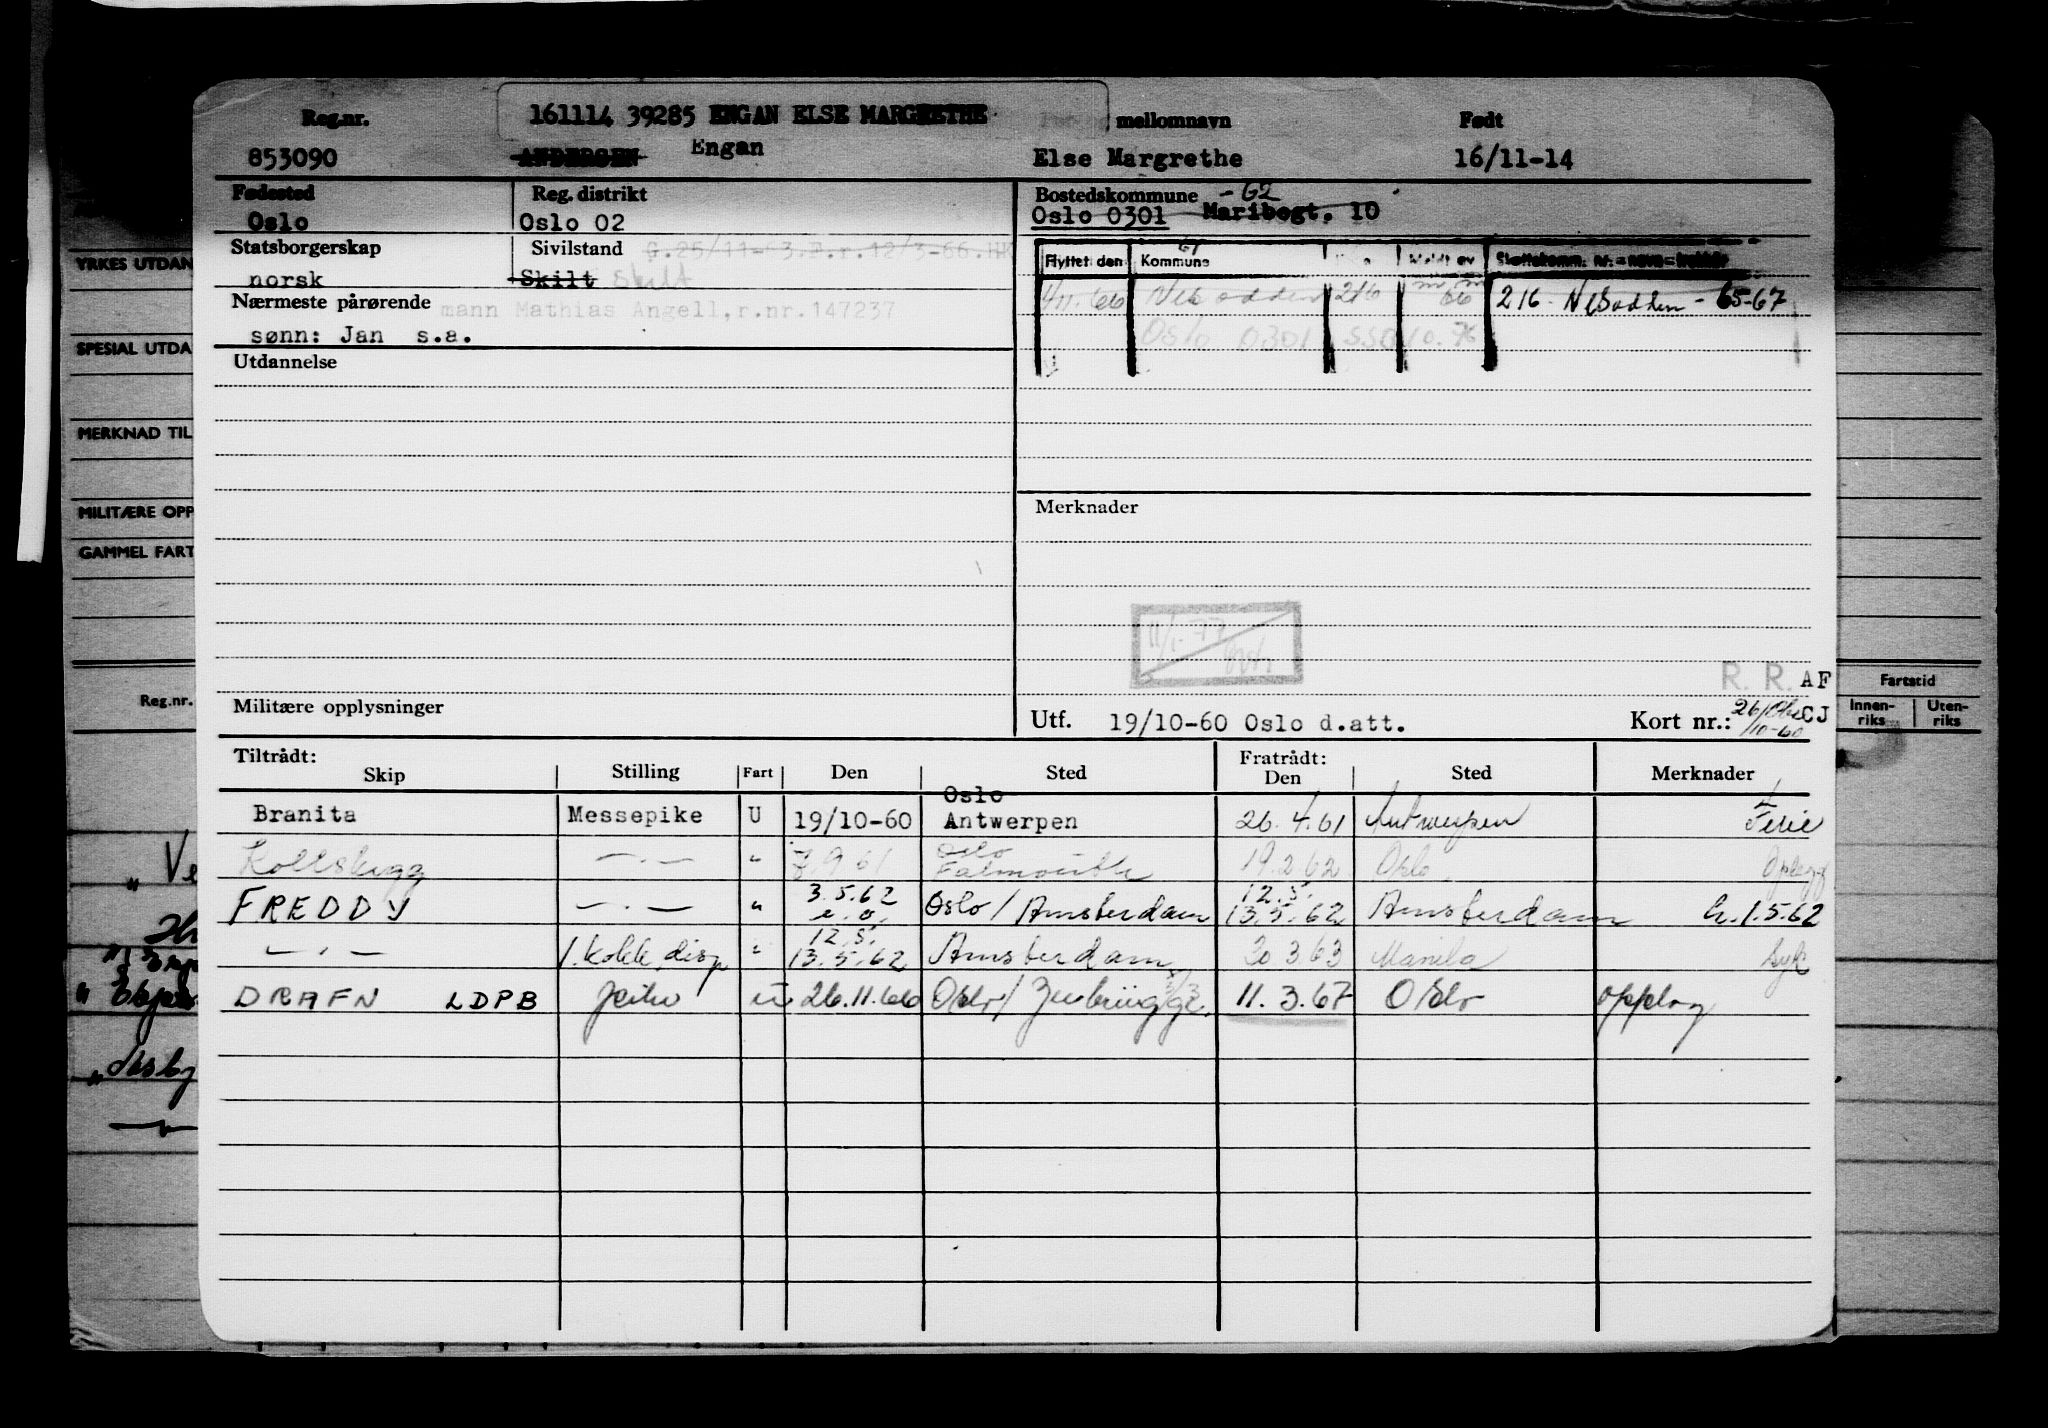 Reg.nr. 161114 39285 ENGAN ELSE MARGRETHE mellomnavn Født
853090 ANDERSEN Engan Else Margrethe 16/11-14
Fødested Reg. distrikt Bostedskommune -62
Oslo Oslo 02 Oslo 0301 Maribogt. 10
Statsborgerskap Sivilstand G.25/11-63.E.r.12/3-66.HH
norsk Skilt Skilt
Flyttet den Kommune Meldt av Skattekomm. nr. = navn = trekkår
Nærmeste pårørende mann Mathias Angell, r.nr.147237
66 Nesodden 216 66 216 - Nesodden - 65-67
sønn: Jan s.a.
Oslo 0301
Utdannelse
Merknader
11/1-77
R. R. AF
Militære opplysninger
Utf. 19/10-60 Oslo d.att. Kort nr.: 26/10-60 CJ
Tiltrådt: Fratrådt:
Skip Stilling Fart Den Sted Den Sted Merknader
Branita Messepike U 19/10-60 Oslo Antwerpen 26.4.61 Antwerpen Ferie
— . — " 7.9 61 Oslo Falmouth 19.2.62 Oslo
FREDDY — . — " 3.5.62 Oslo / Amsterdam 12.5. 13.5.62 Amsterdam h. 1.5.62
— . — 1. kokk disp " 12.5. 13.5.62 Amsterdam 20 3 63 Manila Syk
DRAFN LDPB u 26.11.66 Oslo / Zeebrügge 11.3.67 Oslo opplag
YRKES UTDAN
SPESIAL UTDA
MERKNAD TIL
MILITÆRE OPP
GAMMEL FART
Reg.nr.
Fartstid
Innen-riks Uten-riks